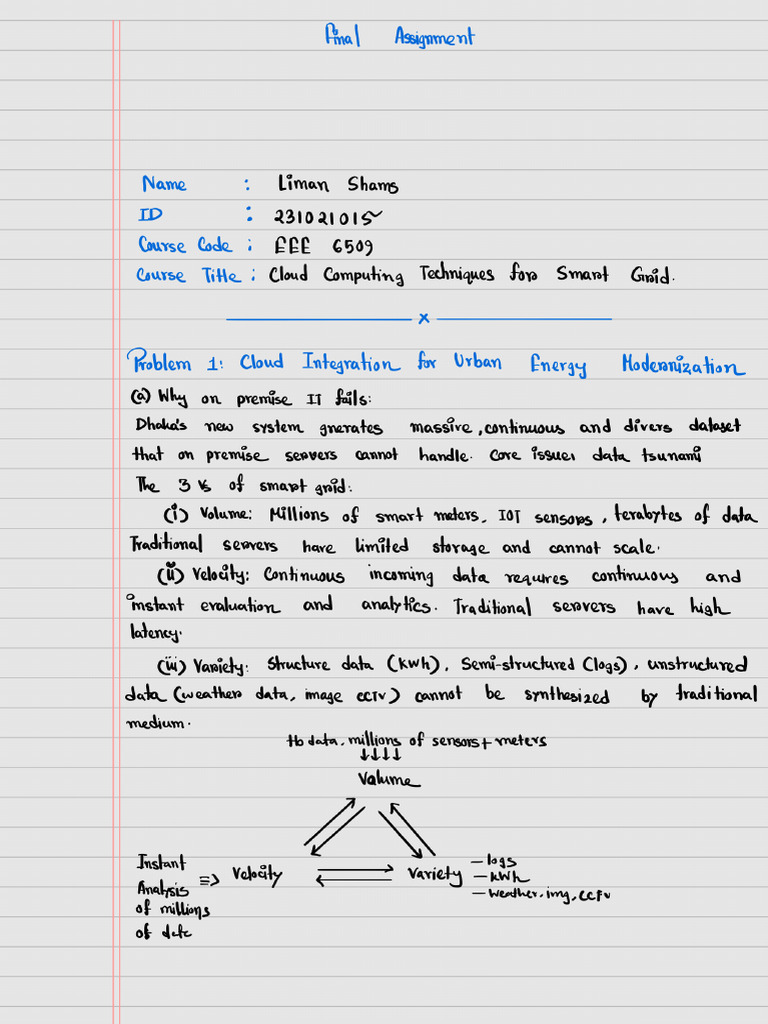 Final Assignment
Name : Liman Shams
ID : 231021015
Course Code : EEE 6509
Course Title : Cloud Computing Techniques for Smart Grid.
x
Problem 1: Cloud Integration for Urban Energy Modernization
(a) Why on premise IT fails:
Dhaka's new system gnerates massive, continuous and divers dataset
that on premise servers cannot handle. Core issue: data tsunami
The 3 Vs of smart grid:
(i) Volume: Millions of smart meters, IOT sensors, terabytes of data
Traditional servers have limited storage and cannot scale.
(ii) Velocity: Continuous incoming data requires continuous and
instant evaluation and analytics. Traditional servers have high
latency.
(iii) Variety: Structure data (kWh), Semi-structured (logs), unstructured
data (weather data, image cctv) cannot be synthesized by traditional
medium.
tb data, millions of sensors + meters
↓↓↓↓
Volume
Instant
Analysis
of millions
of data
⇒ Velocity
Variety
– logs
– kWh
– weather, img, CCTV